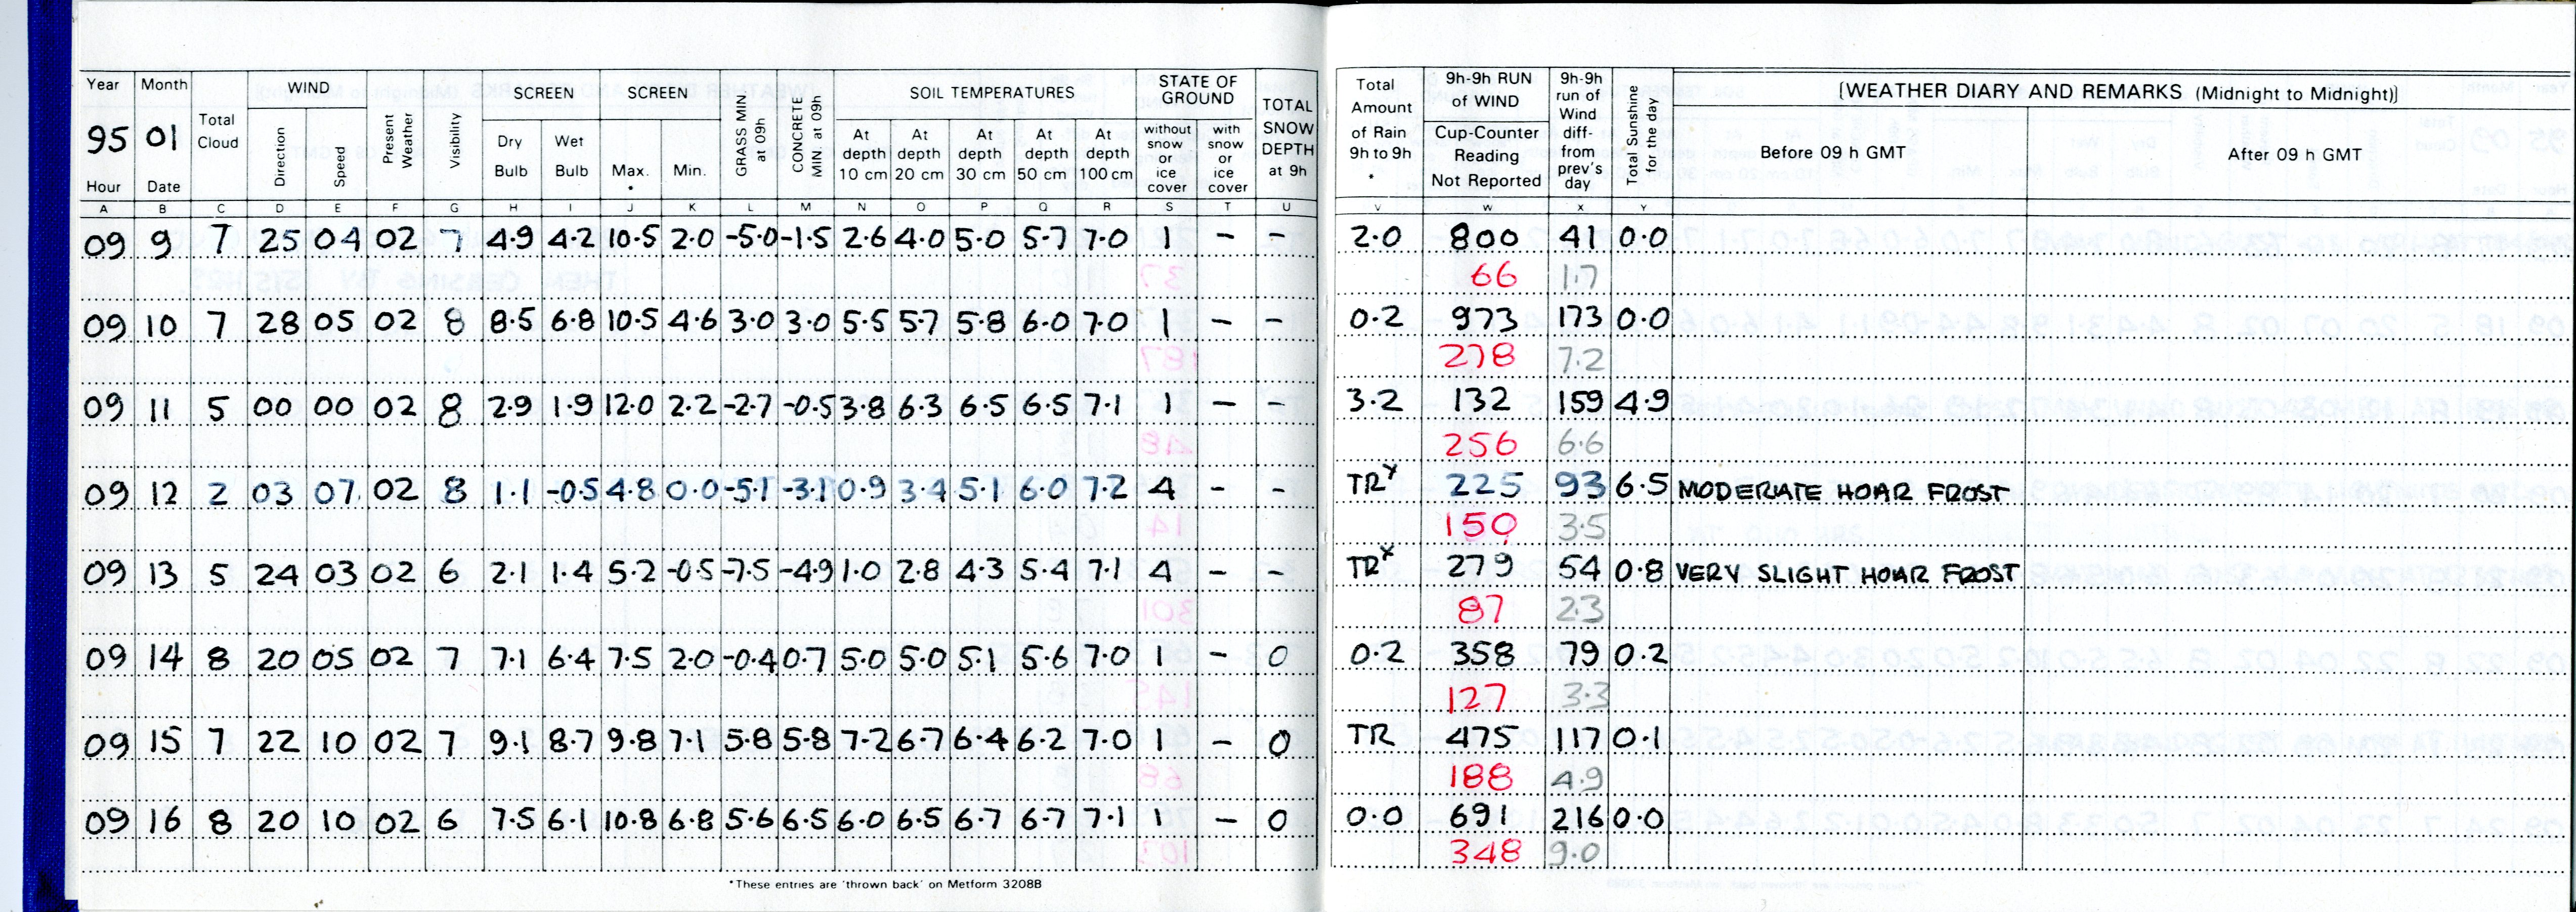 Year Month Total Cloud WIND Present Weather Visibility SCREEN SCREEN GRASS MIN at 09h CONCRETE MIN at 09h SOIL TEMPERATURES STATE OF GROUND TOTAL SNOW DEPTH at 9h Total Amount of Rain 9h to 9h * 9h-9h RUN of WIND 9h-9h run of Wind diff- from prev's day Total Sunshine for the day [WEATHER DIARY AND REMARKS (Midnight to Midnight)]
95 01 Direction Speed Dry Bulb Wet Bulb Max. * Min. At depth 10 cm At depth 20 cm At depth 30 cm At depth 50 cm At depth 100 cm without snow or ice cover with snow or ice cover Cup-Counter Reading Not Reported Before 09 h GMT After 09 h GMT
Hour Date
A B C D E F G H I J K L M N O P Q R S T U V W X Y
09 9 7 25 04 02 7 4.9 4.2 10.5 2.0 -5.0 -1.5 2.6 4.0 5.0 5.7 7.0 1 - - 2.0 800 41 0.0
66 1.7
09 10 7 28 05 02 8 8.5 6.8 10.5 4.6 3.0 3.0 5.5 5.7 5.8 6.0 7.0 1 - - 0.2 973 173 0.0
278 7.2
09 11 5 00 00 02 8 2.9 1.9 12.0 2.2 -2.7 -0.5 3.8 6.3 6.5 6.5 7.1 1 - - 3.2 132 159 4.9
256 6.6
09 12 2 03 07 02 8 1.1 -0.5 4.8 0.0 -5.1 -3.1 0.9 3.4 5.1 6.0 7.2 4 - - TR 225 93 6.5 MODERATE HOAR FROST
150 3.5
09 13 5 24 03 02 6 2.1 1.4 5.2 -0.5 -7.5 -4.9 1.0 2.8 4.3 5.4 7.1 4 - - TR 279 54 0.8 VERY SLIGHT HOAR FROST
87 2.3
09 14 8 20 05 02 7 7.1 6.4 7.5 2.0 -0.4 0.7 5.0 5.0 5.1 5.6 7.0 1 - 0 0.2 358 79 0.2
127 3.3
09 15 7 22 10 02 7 9.1 8.7 9.8 7.1 5.8 5.8 7.2 6.7 6.4 6.2 7.0 1 - 0 TR 475 117 0.1
188 4.9
09 16 8 20 10 02 6 7.5 6.1 10.8 6.8 5.6 6.5 6.0 6.5 6.7 6.7 7.1 1 - 0 0.0 691 216 0.0
348 9.0
*These entries are 'thrown back' on Metform 3208B